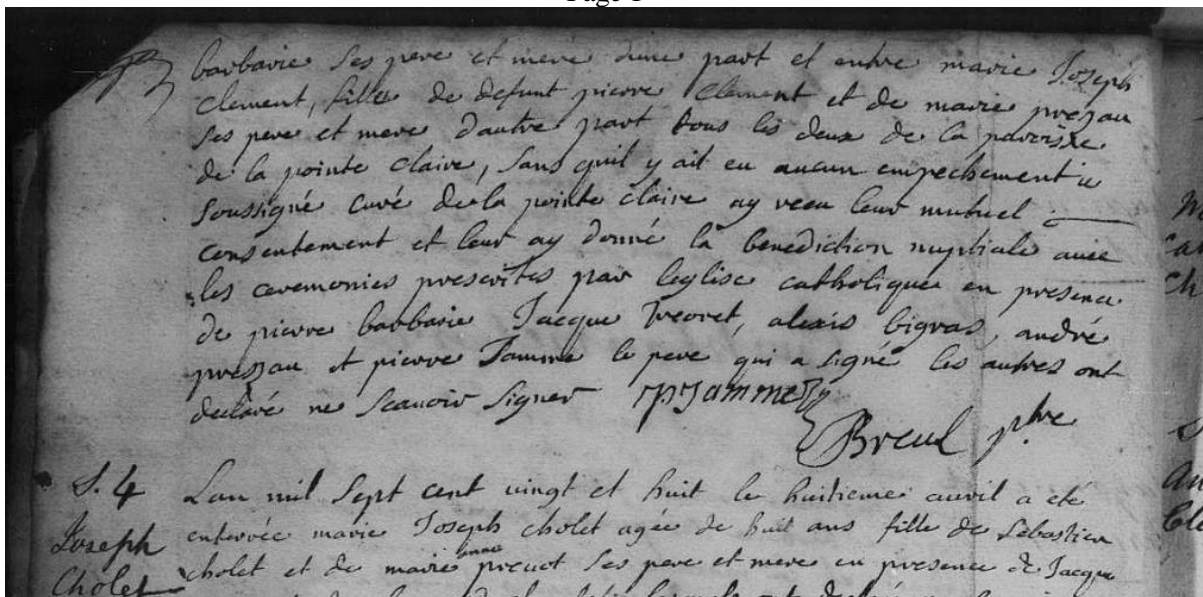 barbarie ses pere et mere dune part et entre marie Joseph
Clement, fille de defunt pierre Clement et de marie prezau
ses pere et mere dautre part tous les deux de la paroisse
de la pointe claire, sans quil y ait eu aucun empechement ie
soussigné curé de la pointe claire ay receu leur mutuel
consentement et leur ay donné la benediction nuptiale avec
les ceremonies prescrites par leglise catholique en presence
de pierre barbarie Jacque Treoret, alexis bigras, andré
prezau et pierre Jamme le pere qui a signé les autres ont
declaré ne scavoir signer pJamme
Breul ptre
S. 4
Joseph
Cholet
Lan mil sept cent vingt et huit le huitieme avril a eté
enterrée marie Joseph cholet agée de huit ans fille de Sebastien
cholet et de marie anne prevot ses pere et mere en presence de Jacque